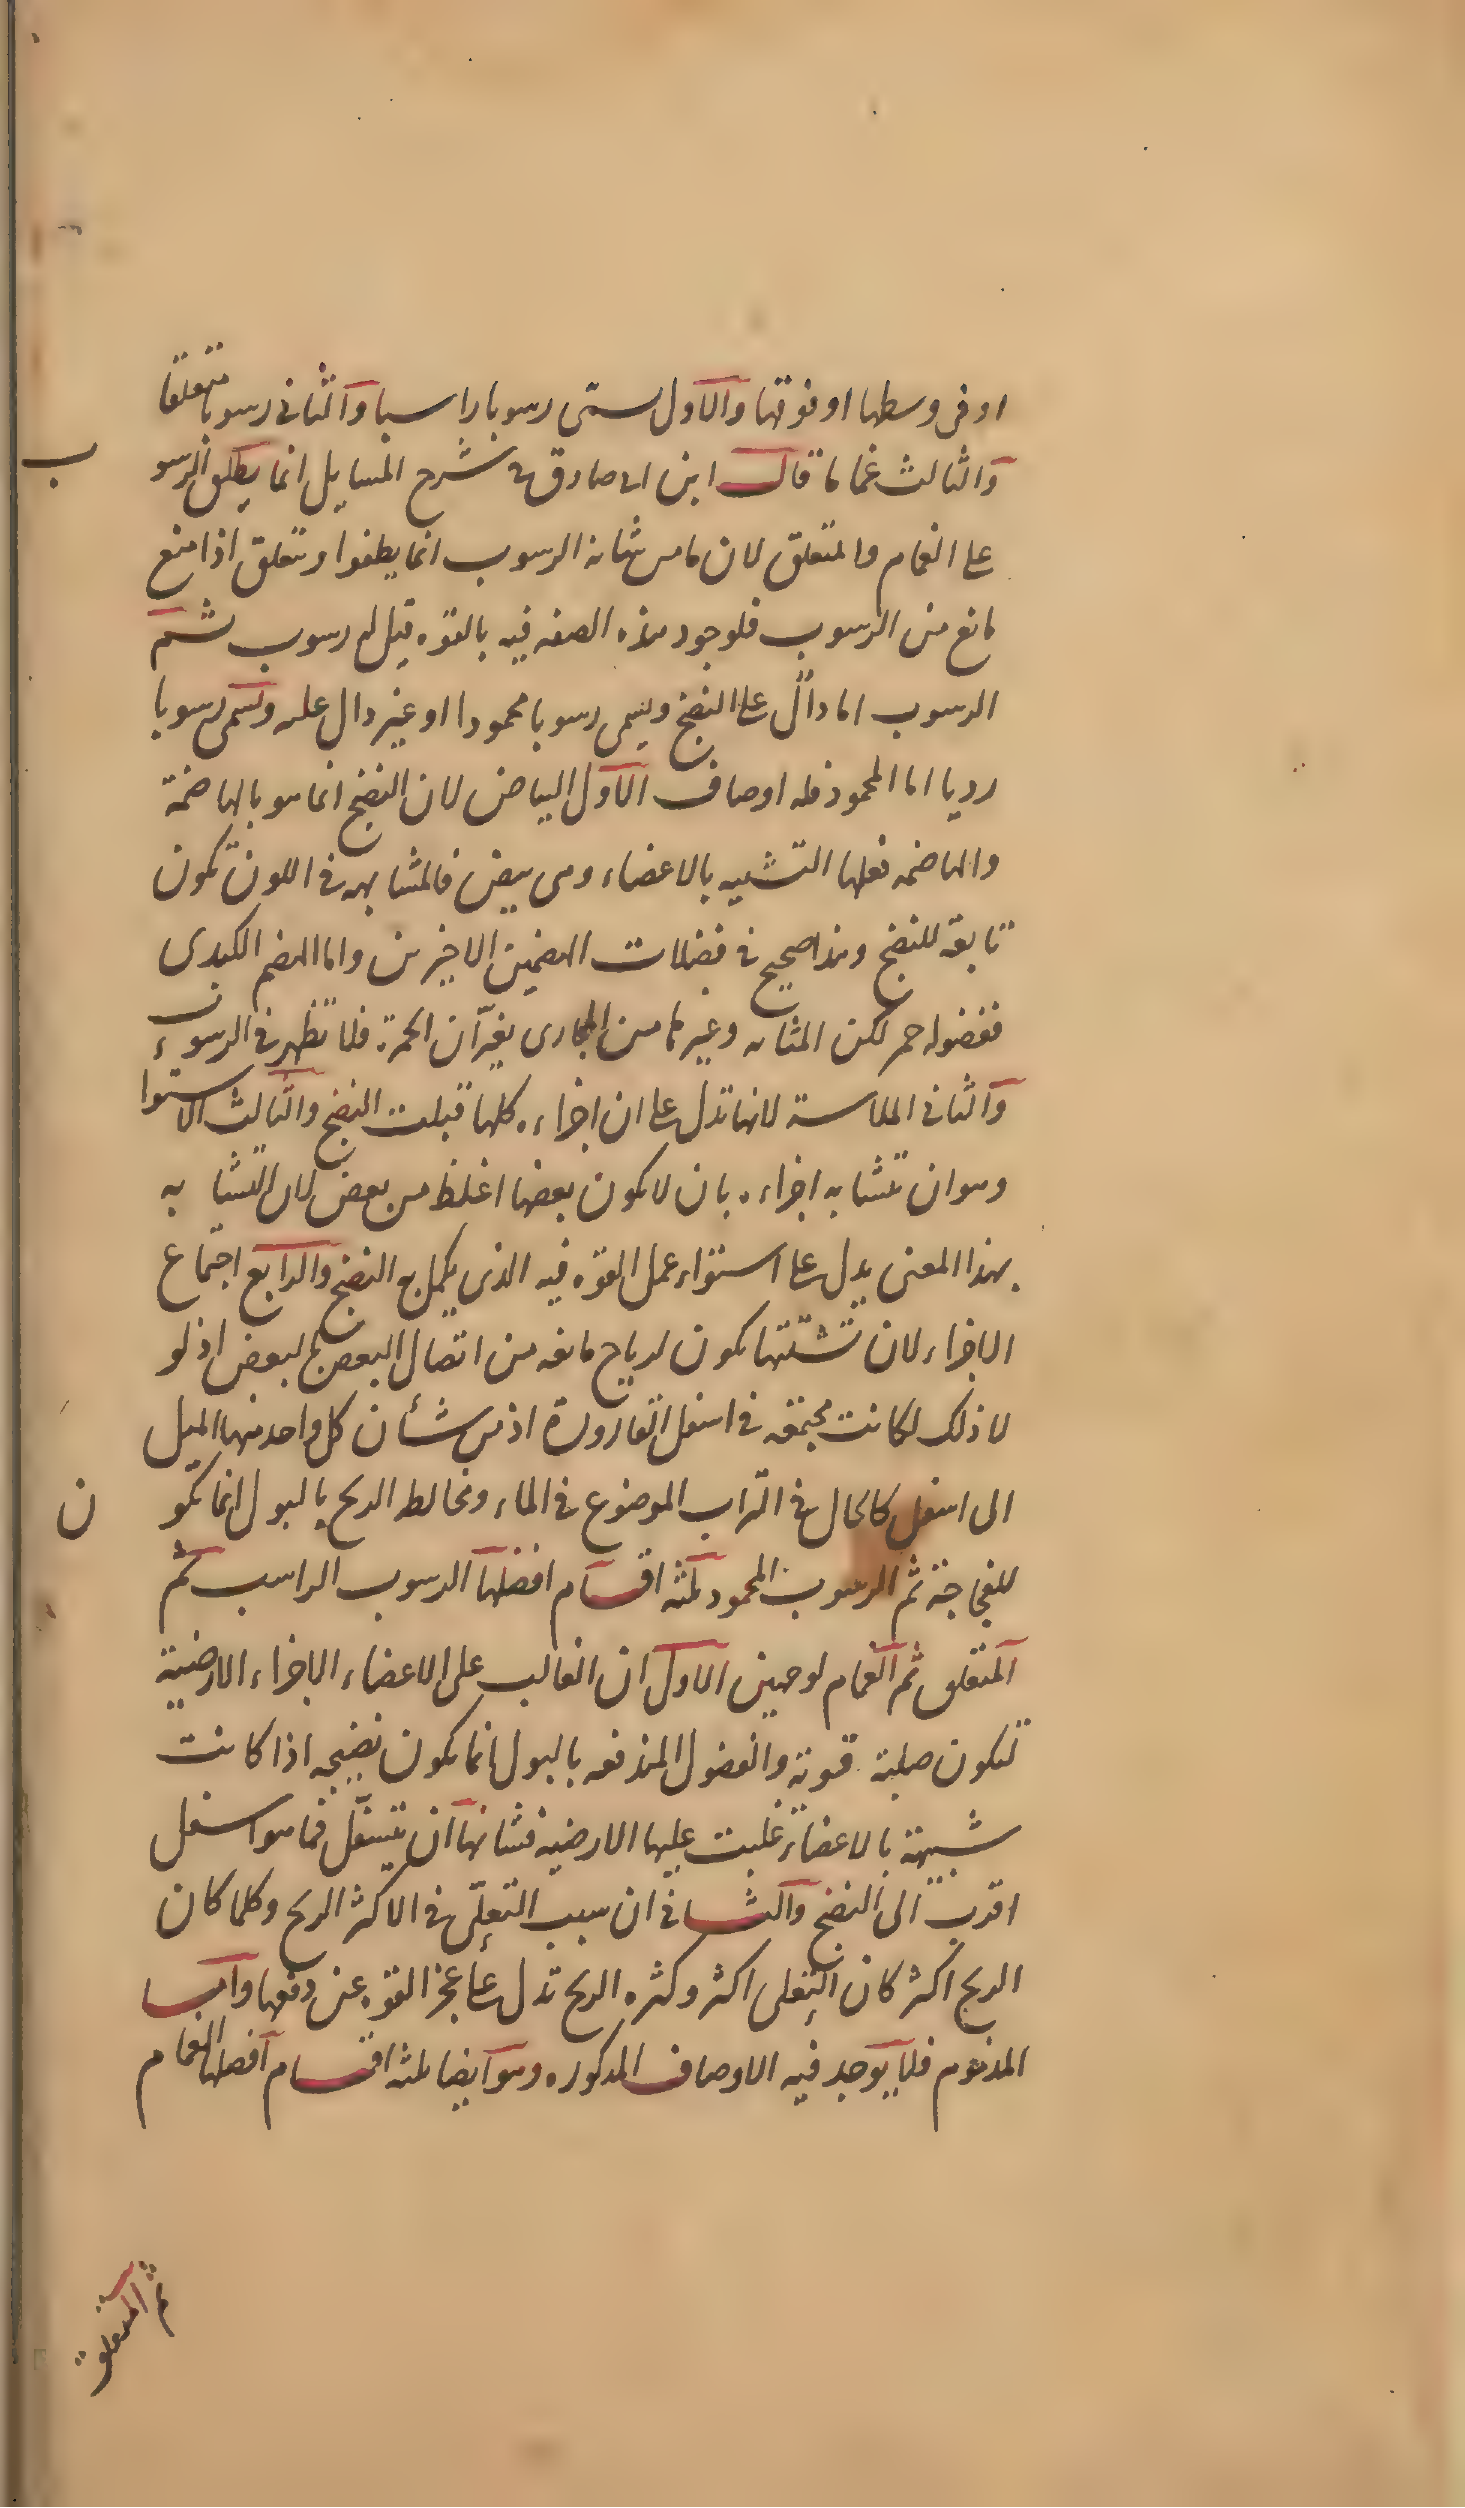 او فى وسطها او فوقها والاول يسمى رسوبا راسبا والثانى رسوبا متعلقا
والثالث غماما قال ابن ابى صادق فى شرح المسايل انما يطلق الرسو
ب
على الغمام والمتعلق لان ما من شانه الرسوب انما يطفوا ويتعلق اذا منع
مانع من الرسوب فلوجود هذه الصفه فيه بالقوه قيل له رسوب ثم
الرسوب اما دال على النضج ويسمى رسوبا محمودا او غير دال عليه ويسمى رسوبا
رديا اما المحمود فله اوصاف الاول البياض لان النضج انما هو بالهاضمة
والهاضمه فعلها التشبيه بالاعضاء وهى بيض فالمشابهه فى اللون تكون
تابعة للنضج وهذا صحيح فى فضلات الهضمين الاخيرين واما الهضم الكبدى
ففضوله حمر لكن المثانه وغيرها من المجارى يغيران الحمرة فلا تظهر فى الرسوب
والثانى الملاسة لانها تدل على ان اجزاءه كلها قبلت النضج والثالث الاستواء
وهو ان تتشابه اجزاءه بان لا يكون بعضها اغلظ من بعض لان التشابه
بهذا المعنى يدل على استواء عمل القوه فيه الذى يكمل به النضج والرابع اجتماع
الاجزاء لان تشتتها يكون لرياح مانعه من اتصال البعض بالبعض اذ لو
لا ذلك لكانت مجتمعة فى اسفل القارورة اذ من شأن كل واحد منها الميل
الى اسفل كالحال فى التراب الموضوع فى الماء ومخالط الريح بالبول انما تكو
ن
للفجاجة ثم الرسوب المحمود ثلثه اقسام افضلها الرسوب الراسب ثم
المتعلق ثم الغمام لوجهين الاول ان الغالب على الاعضاء الاجزاء الارضية
لتكون صلبة قوية والفضول المندفعه بالبول انما يكون نضيجه اذا كانت
شبيهة بالاعضاء غلبت عليها الارضيه فشانها ان تتسفل فما هو اسفل
اقرب الى النضج والثانى ان سبب التعلى فى الاكثر الريح وكلما كان
الريح اكثر كان التعلى اكثر وكثره الريح تدل على عجز القوه عن دفعها واما
المذموم فلا يوجد فيه الاوصاف المذكوره وهو ايضا ثلثه اقسام افضلها الغمام
ثم المتعلق